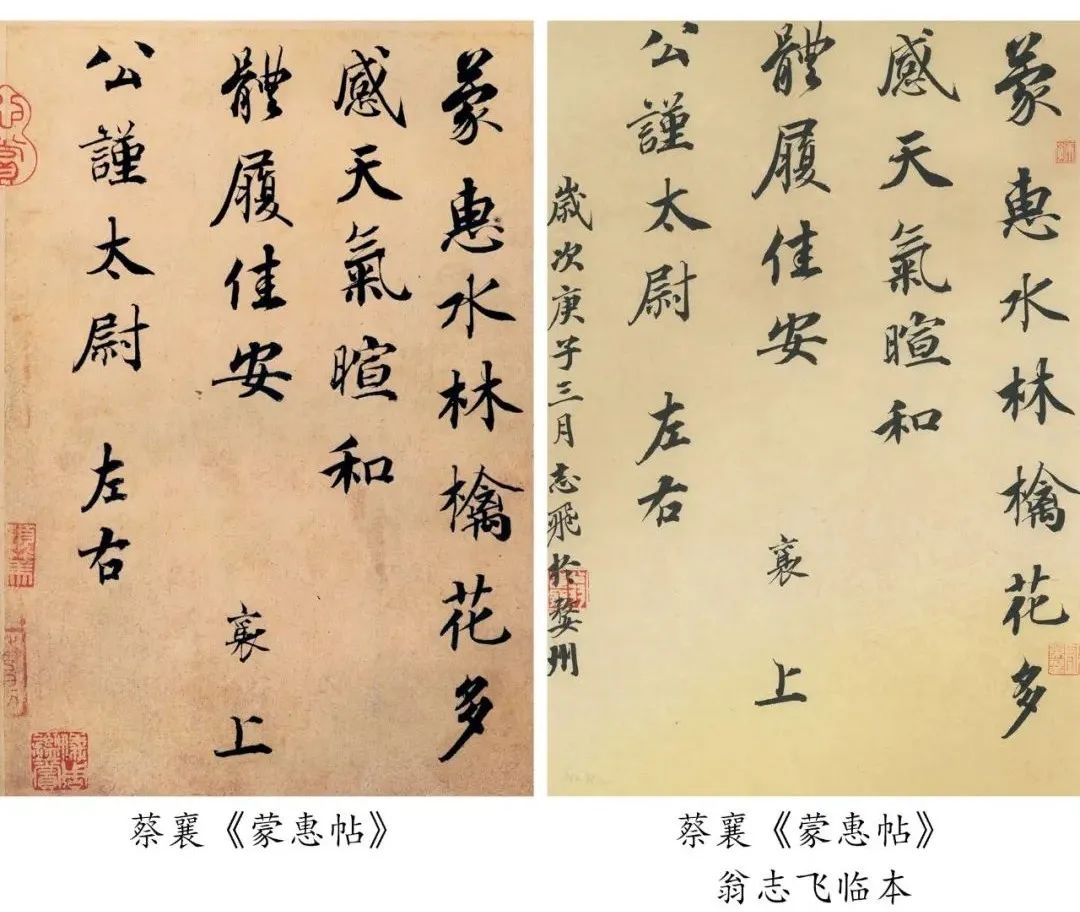 蒙惠水林檎花多
感天氣暄和
體履佳安 襄 上
公謹太尉 左右
蔡襄《蒙惠帖》
蒙惠水林檎花多
感天氣暄和
體履佳安 襄 上
公謹太尉 左右
歲次庚子三月志飛於婺州
蔡襄《蒙惠帖》
翁志飞临本